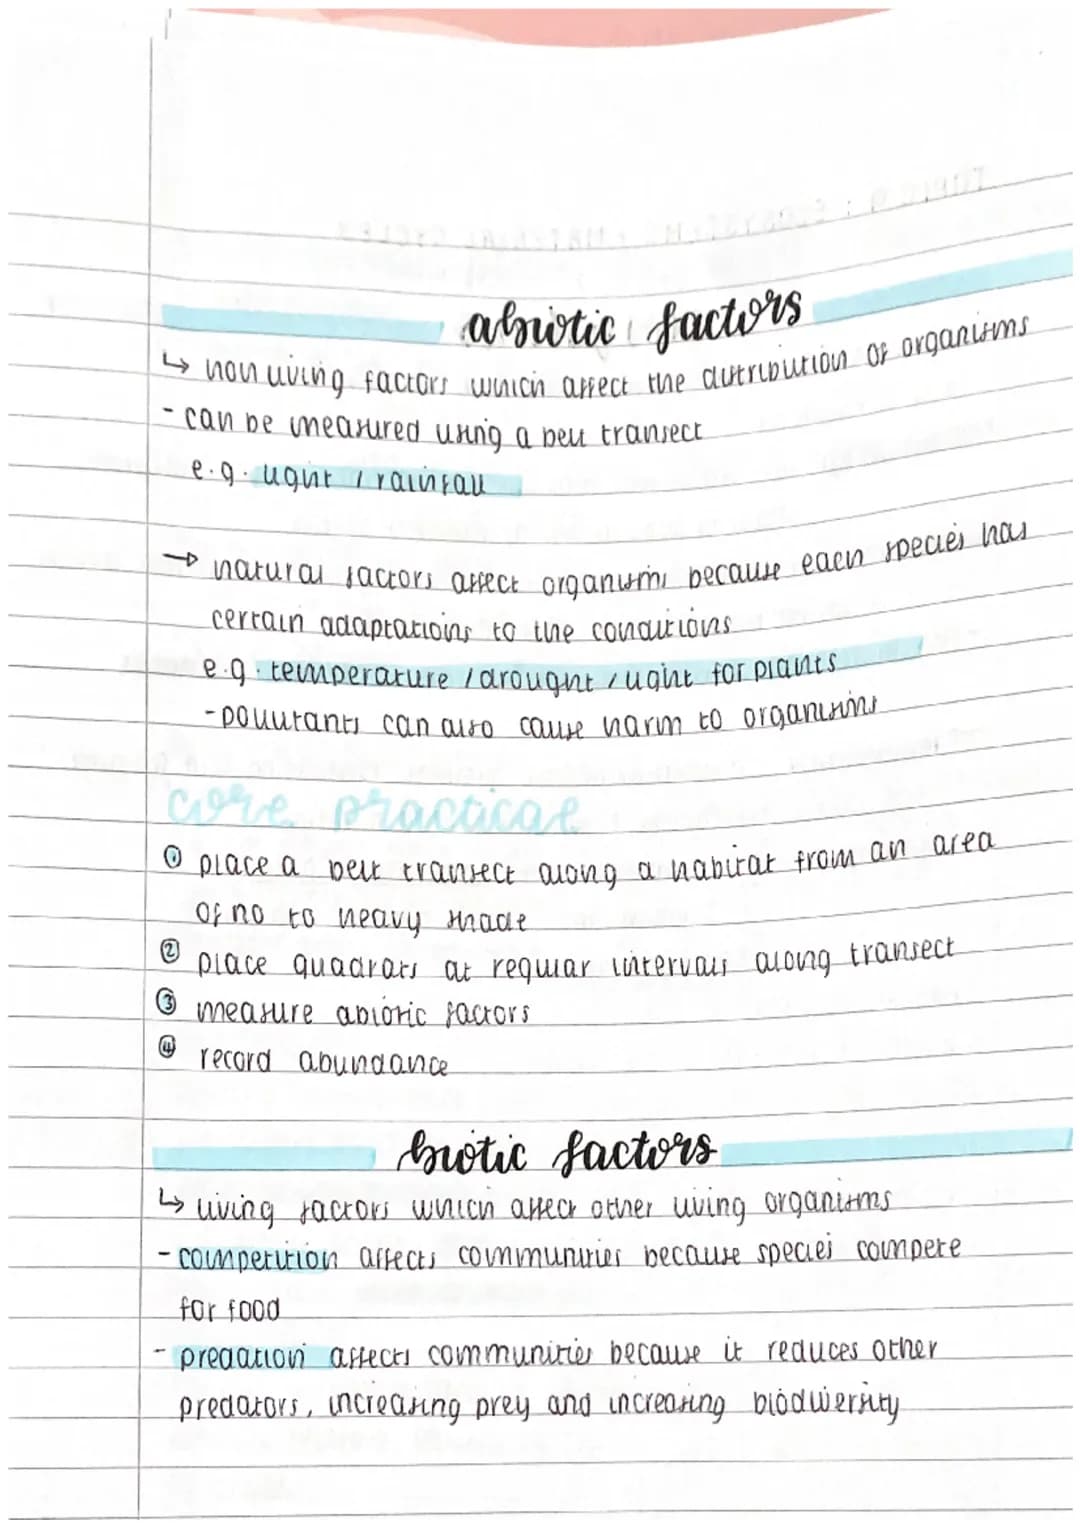 abiotic factors
↳ non living factors which affect the distribution of organisms
- can be measured using a belt transect
e.g. light / rainfall
→ natural factors affect organisms because each species has
certain adaptations to the conditions
e.g. temperature / drought / light for plants
- pollutants can also cause harm to organisms
core practical
① place a belt transect along a habitat from an area
of no to heavy shade
② place quadrats at regular intervals along transect
③ measure abiotic factors
④ record abundance
biotic factors
↳ living factors which affect other living organisms
- competition affects communities because species compete
for food
- predation affects communities because it reduces other
predators, increasing prey and increasing biodiversity